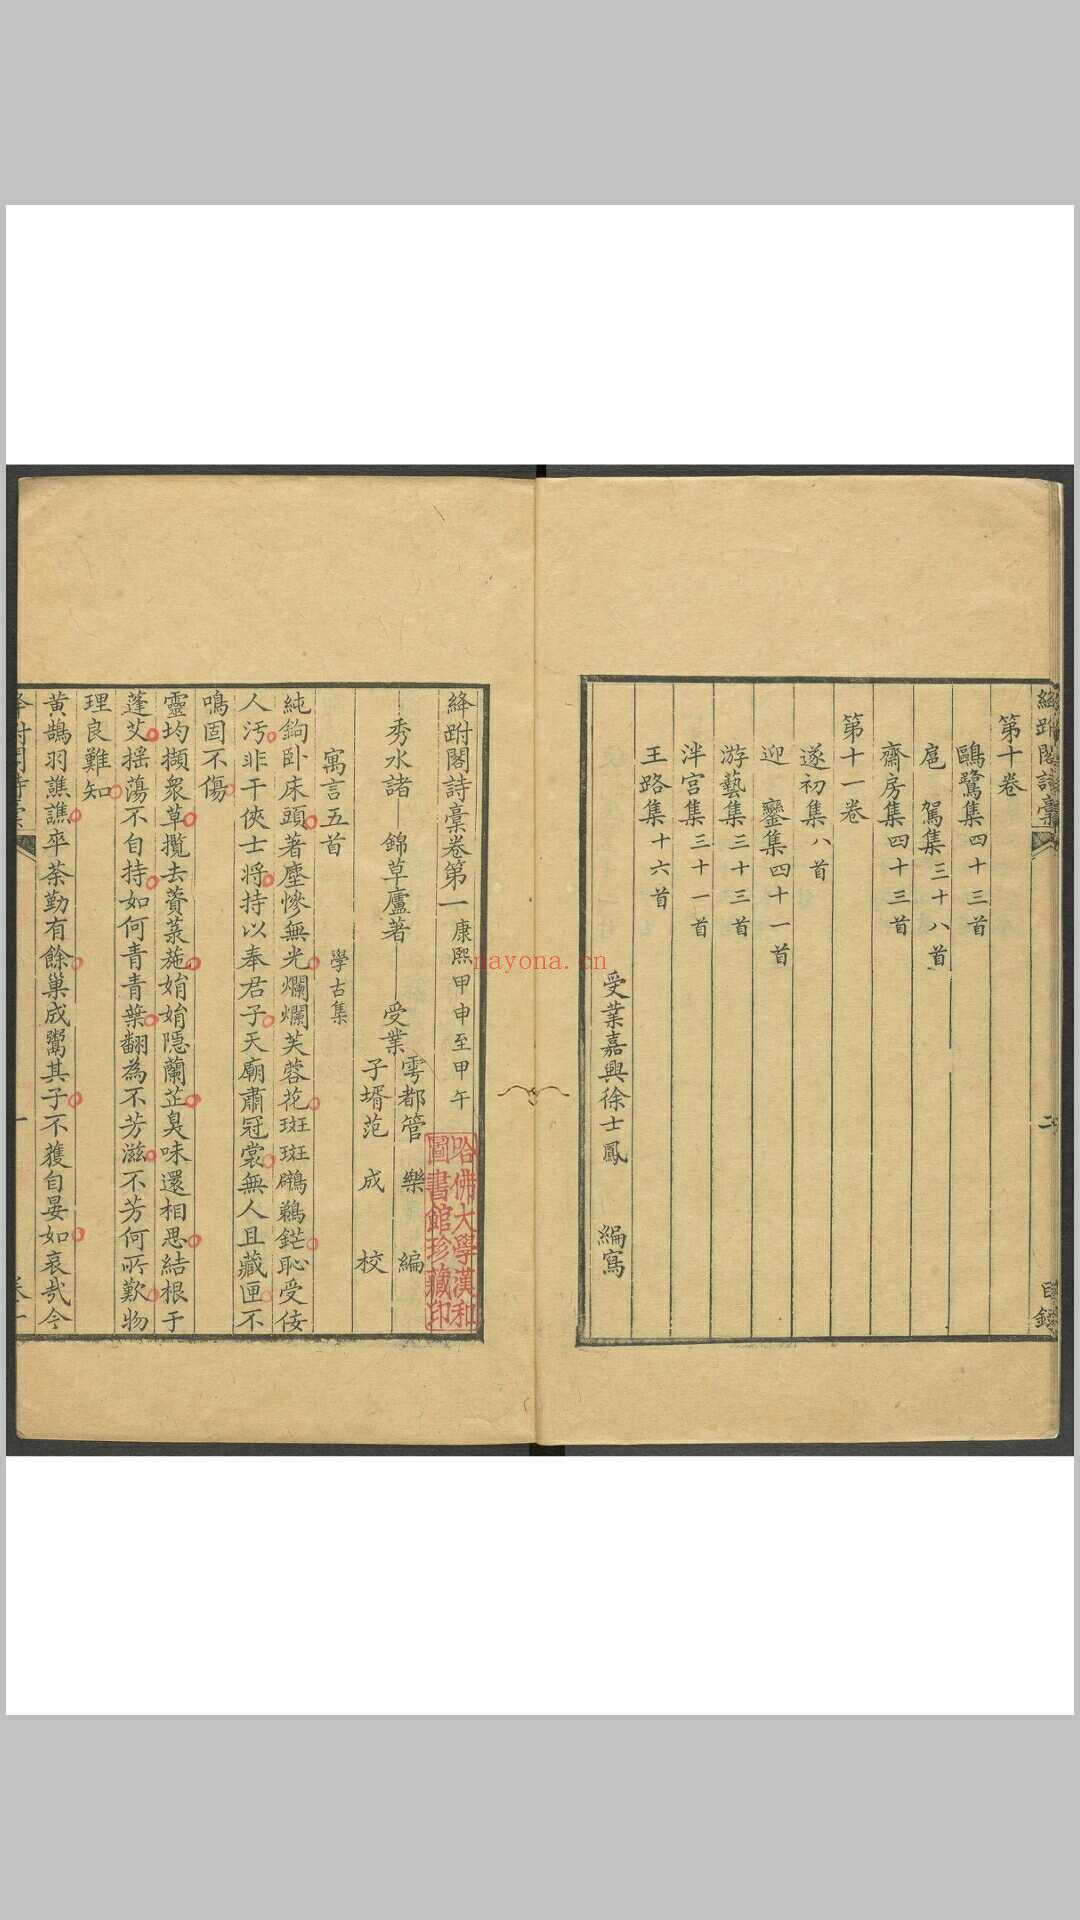 絳跗閣詩稾
目錄
二
第十卷
鷗鷺集四十三首
扈駕集三十八首
齋房集四十三首
第十一卷
遂初集八首
迎鑾集四十一首
游藝集三十三首
泮宮集三十一首
王路集十六首
受業嘉興徐士鳳編寫
絳跗閣詩稾卷第一康熙甲申至甲午
秀水諸錦草廬著
受業雩都管樂編
子壻范成校
哈佛大學漢和圖書館珍藏印
學古集
寓言五首
純鉤卧床頭著塵慘無光爛爛芙蓉花斑斑鷿鵜鋩恥受佞
人汚非干俠士將持以奉君子天廟肅冠裳無人且藏匣不
鳴固不傷
靈均擷衆草攬去薋菉葹娟娟隠蘭芷臭味還相思結根于
蓬艾揺蕩不自持如何青青葉翻為不芳滋不芳何所歎物
理良難知
黄鵠羽譙譙卒荼勤有餘巢成鬻其子不獲自晏如哀哉今
nayona.cn